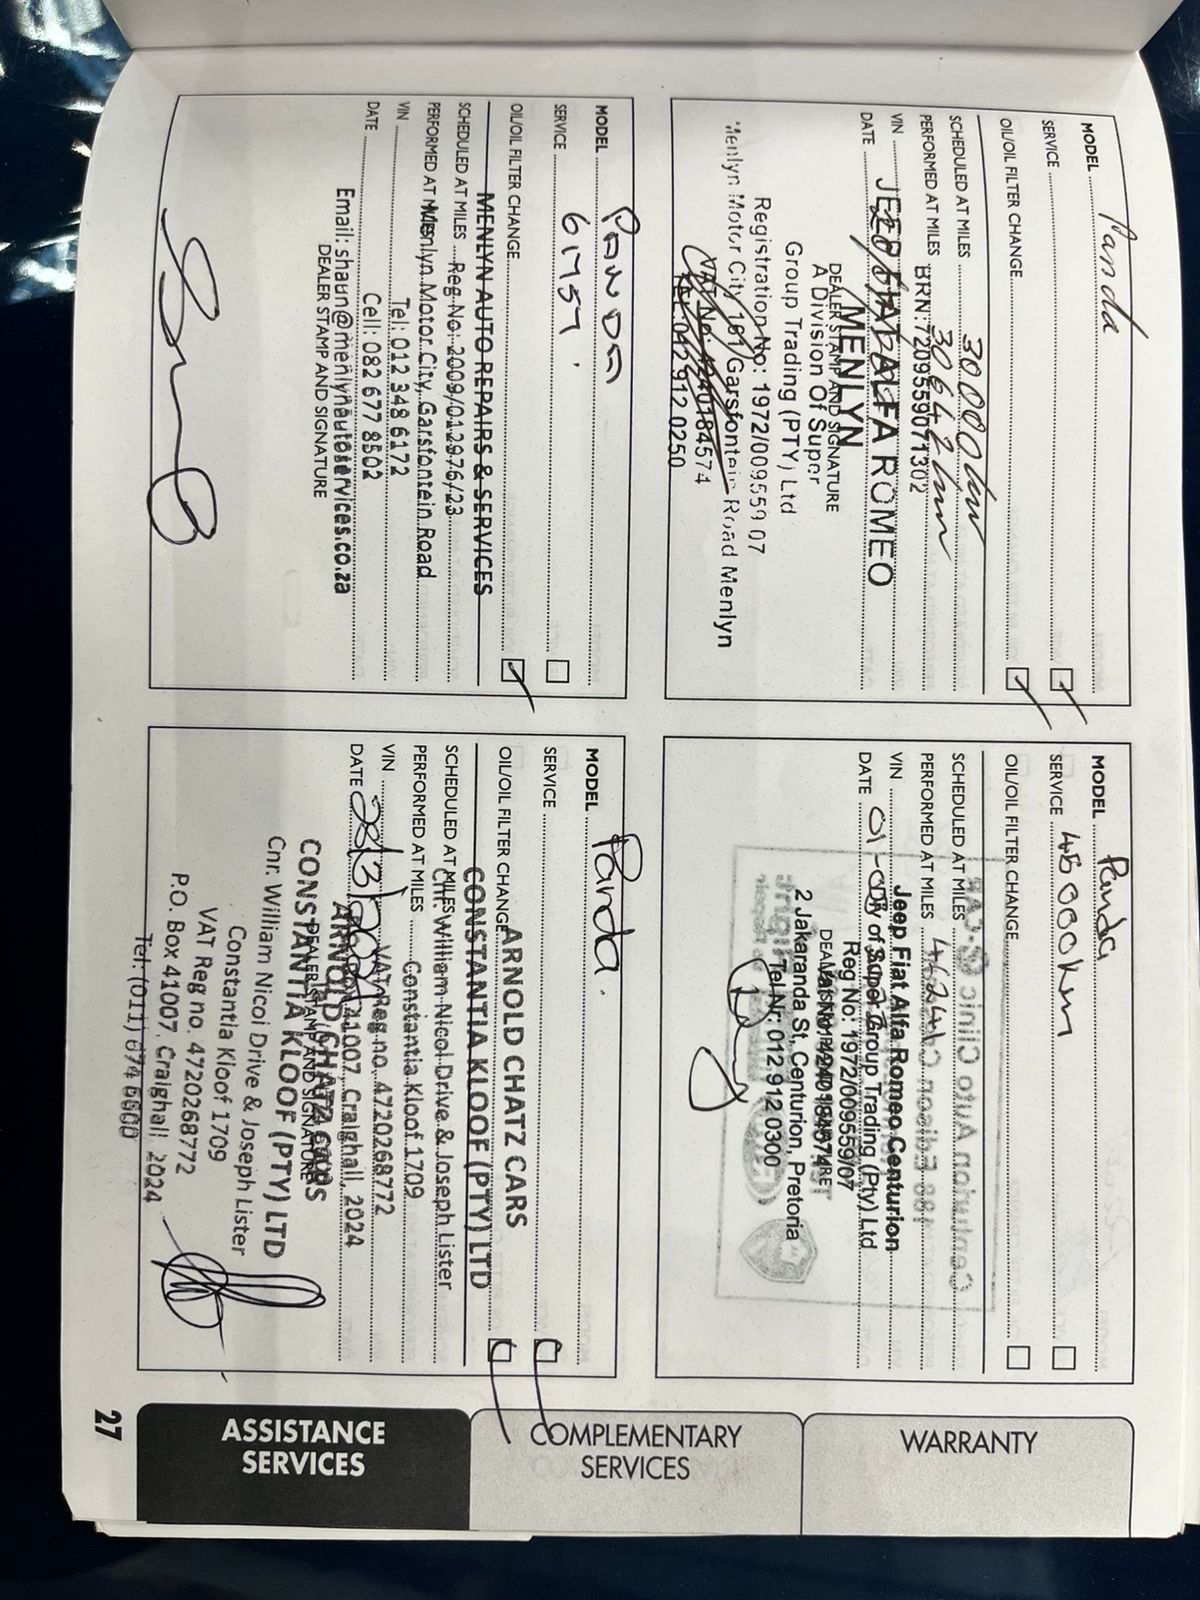 MODEL Panda
SERVICE
OIL/OIL FILTER CHANGE
SCHEDULED AT MILES 30000 km
PERFORMED AT MILES 30642 km
BRN:7209559071302
VIN
JEEP FIAT ALFA ROMEO
DATE
MENLYN
DEALER STAMP AND SIGNATURE
A Division Of Super
Group Trading (PTY) Ltd
Registration No: 1972/009559 07
Menlyn Motor City 161 Garsfontein Road Menlyn
VAT No. 4240184574
Tel: 012 912 0250
MODEL Panda
SERVICE 45000km
OIL/OIL FILTER CHANGE
Centurion Auto Clinic
SCHEDULED AT MILES
PERFORMED AT MILES
VIN
Jeep Fiat Alfa Romeo Centurion
DATE
Div of Super Group Trading (Pty) Ltd
Reg No: 1972/009559/07
DEALER STAMP AND SIGNATURE
Vat No: 4240184574
2 Jakaranda St, Centurion, Pretoria
Tel Nr: 012 912 0300
MODEL PANDA
SERVICE 61757
OIL/OIL FILTER CHANGE
MENLYN AUTO REPAIRS & SERVICES
SCHEDULED AT MILES
Reg No: 2009/012976/23
PERFORMED AT MILES
Menlyn Motor City, Garsfontein Road
VIN
Tel: 012 348 6172
DATE
Cell: 082 677 8502
Email: shaun@menlynautoservices.co.za
DEALER STAMP AND SIGNATURE
MODEL Panda.
SERVICE
OIL/OIL FILTER CHANGE
ARNOLD CHATZ CARS
CONSTANTIA KLOOF (PTY) LTD
SCHEDULED AT MILES
Cnr. William Nicol Drive & Joseph Lister
PERFORMED AT MILES
Constantia Kloof 1709
VIN
VAT Reg no. 4720268772
DATE
41007, Craighall, 2024
ARNOLD CHATZ CARS
DEALER STAMP AND SIGNATURE
CONSTANTIA KLOOF (PTY) LTD
Cnr. William Nicol Drive & Joseph Lister
Constantia Kloof 1709
VAT Reg no. 4720268772
P.O. Box 41007, Craighall, 2024
Tel: (011)
WARRANTY
COMPLEMENTARY
SERVICES
ASSISTANCE
SERVICES
27